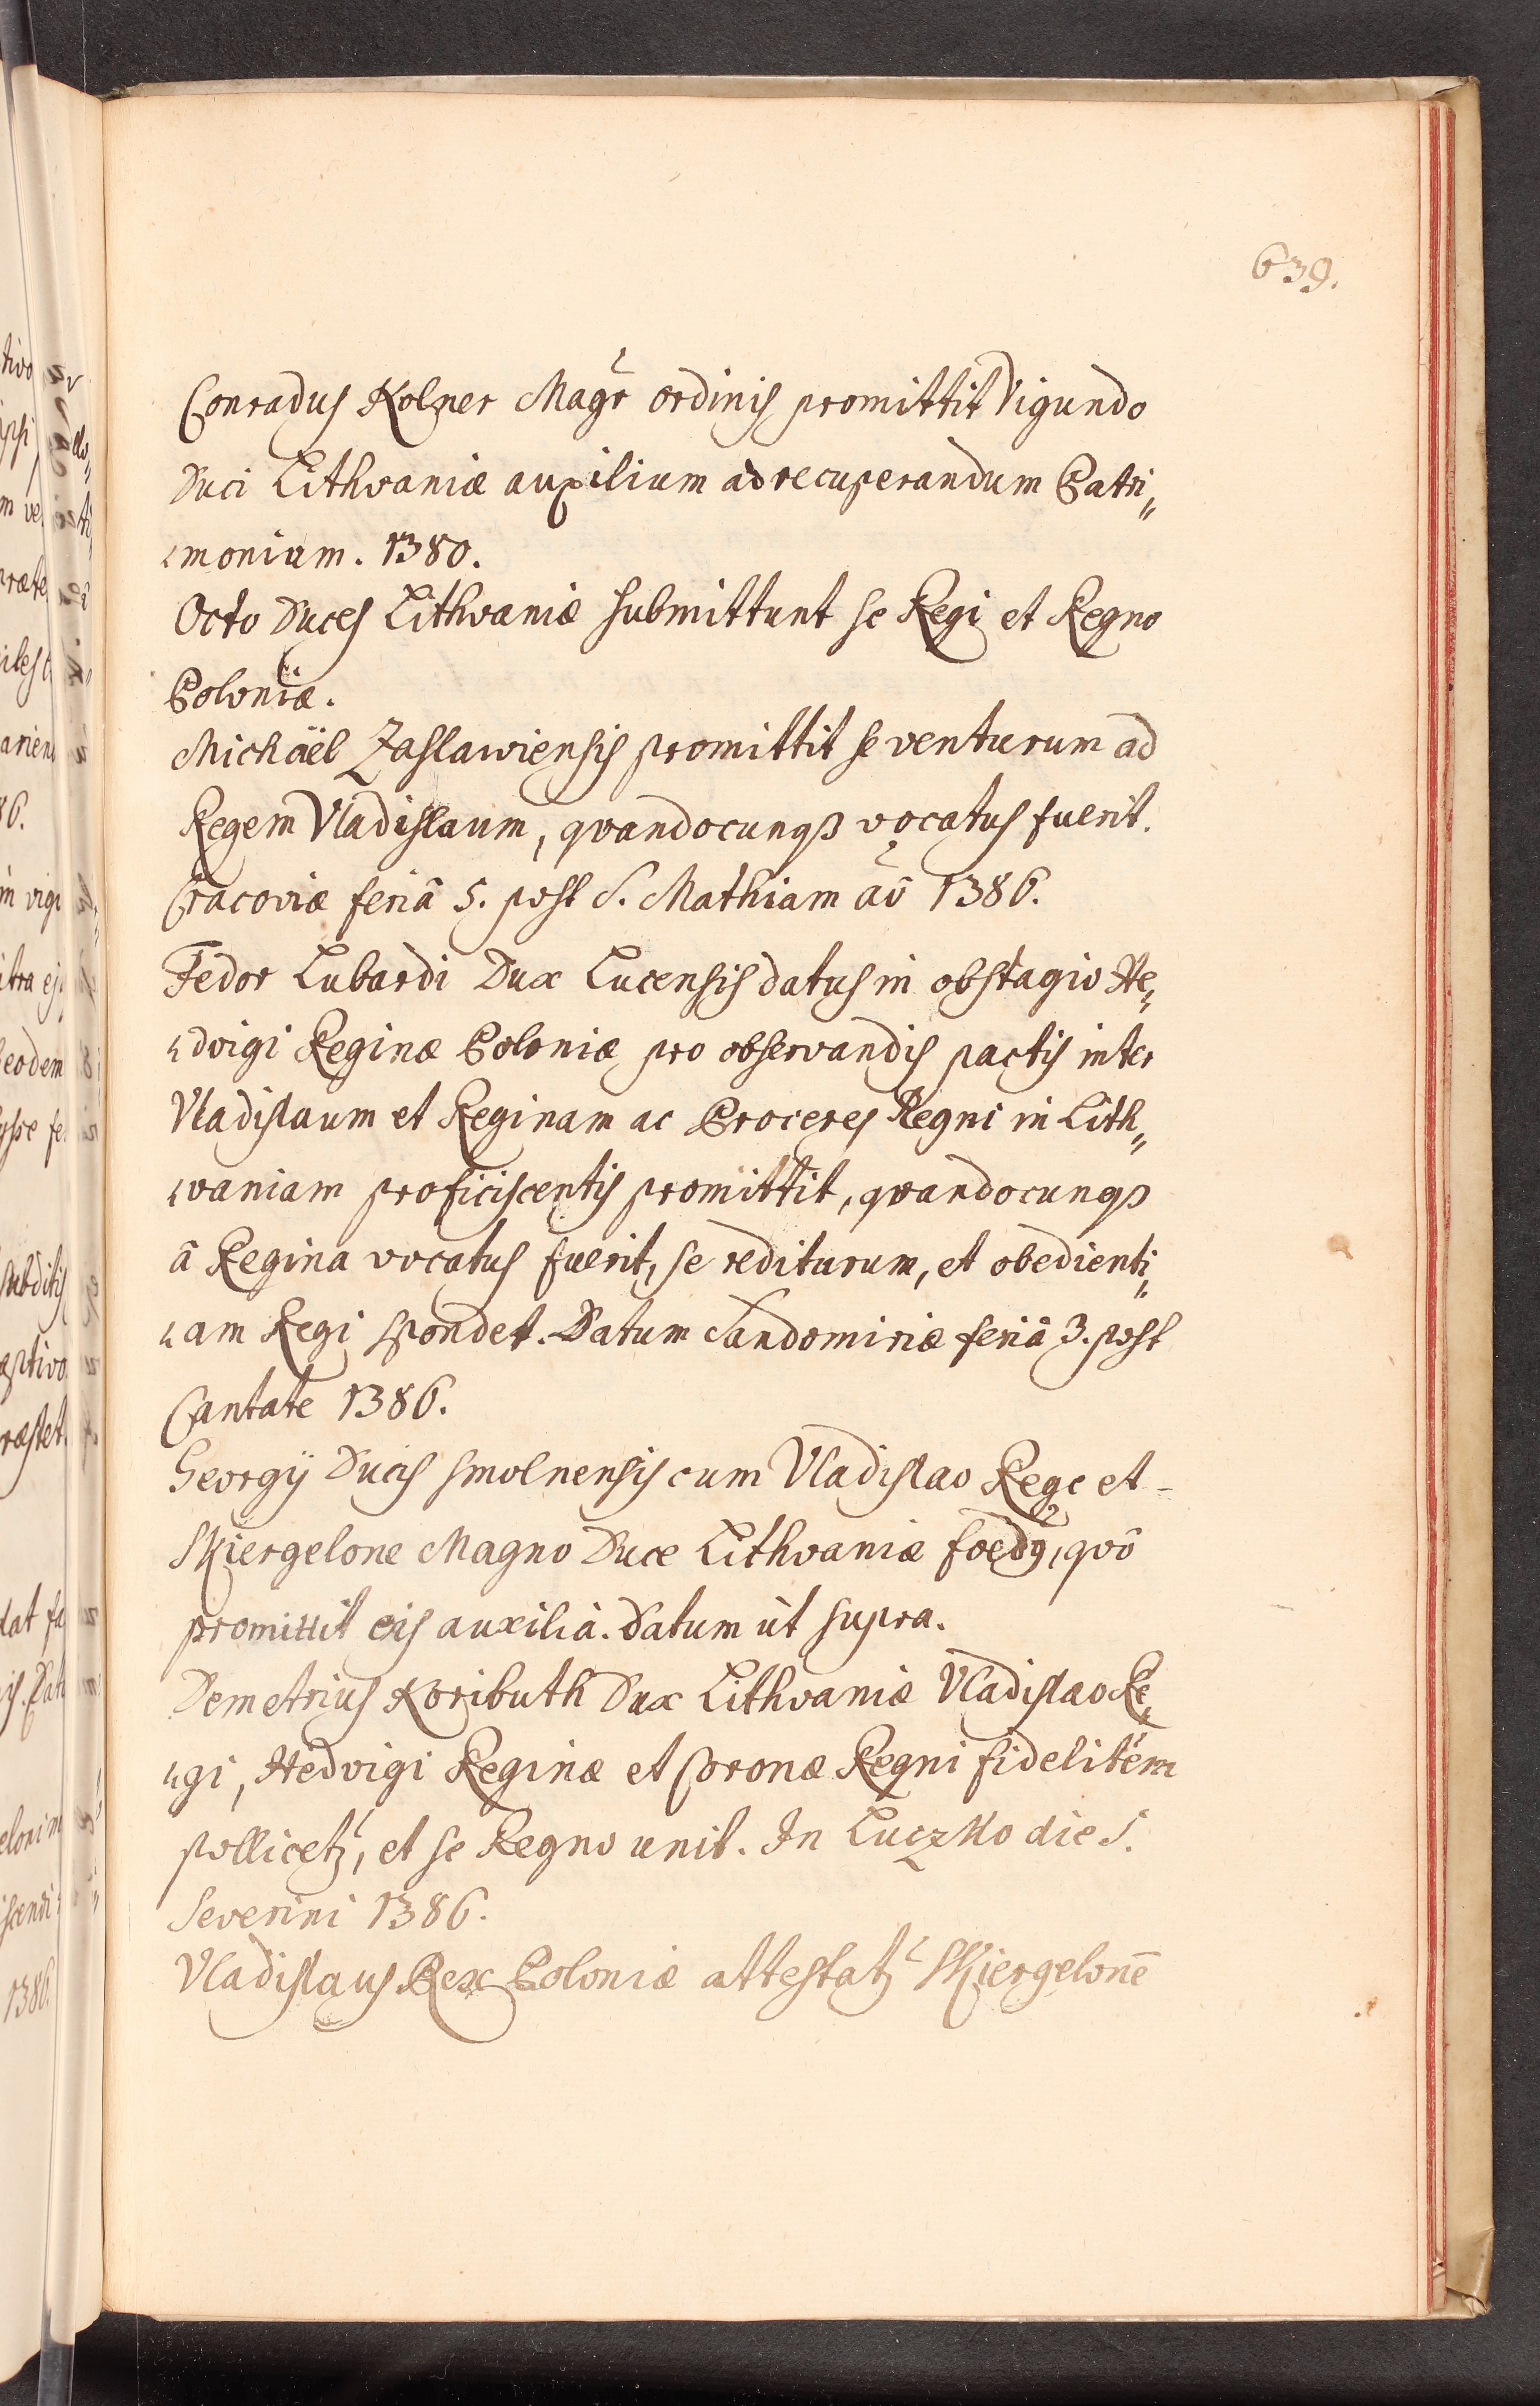 639.
Conradus Kolner Magr ordinis promittit Vigundo
Duci Lithvaniæ auxilium ad recuperandum Patri„
„monium. 1380.
Octo Duces Lithvaniæ submittunt se Regi et Regno
Poloniæ.
Michäel Zaslawiensis promittit se venturum ad
Regem Vladislaum, qvandocunqß vocatus fuerit.
Cracoviæ feriâ 5. post S. Mathiam aō 1386.
Fedor Lubardi Dux Lucensis datus in obstagio He„
„dvigi Reginæ Poloniæ pro observandis pactis inter
Vladislaum et Reginam ac Proceres Regni in Lith„
„vaniam proficiscentis promittit, qvandocunqß
â Regina vocatus fuerit, se rediturum, et obedienti„
„am Regi spondet. Datum Sandomiriæ feriâ 3. post
Cantate 1386.
Georgij Ducis smolnensis cum Vladislao Rege et -
Skiergelone Magno Duce Lithvaniæ foedꝰ, qvô
promittit eis auxilia. Datum ut supra.
Demetrius Koributh Dux Lithvaniæ Vladislao Re„
„gi, Hedvigi Reginæ et Coronæ Regni fidelitem
pollicetz, et se Regno unit. In Luczko die S.
Severini 1386.
Vladislaus Rex Poloniæ attestatz Skiergelonē